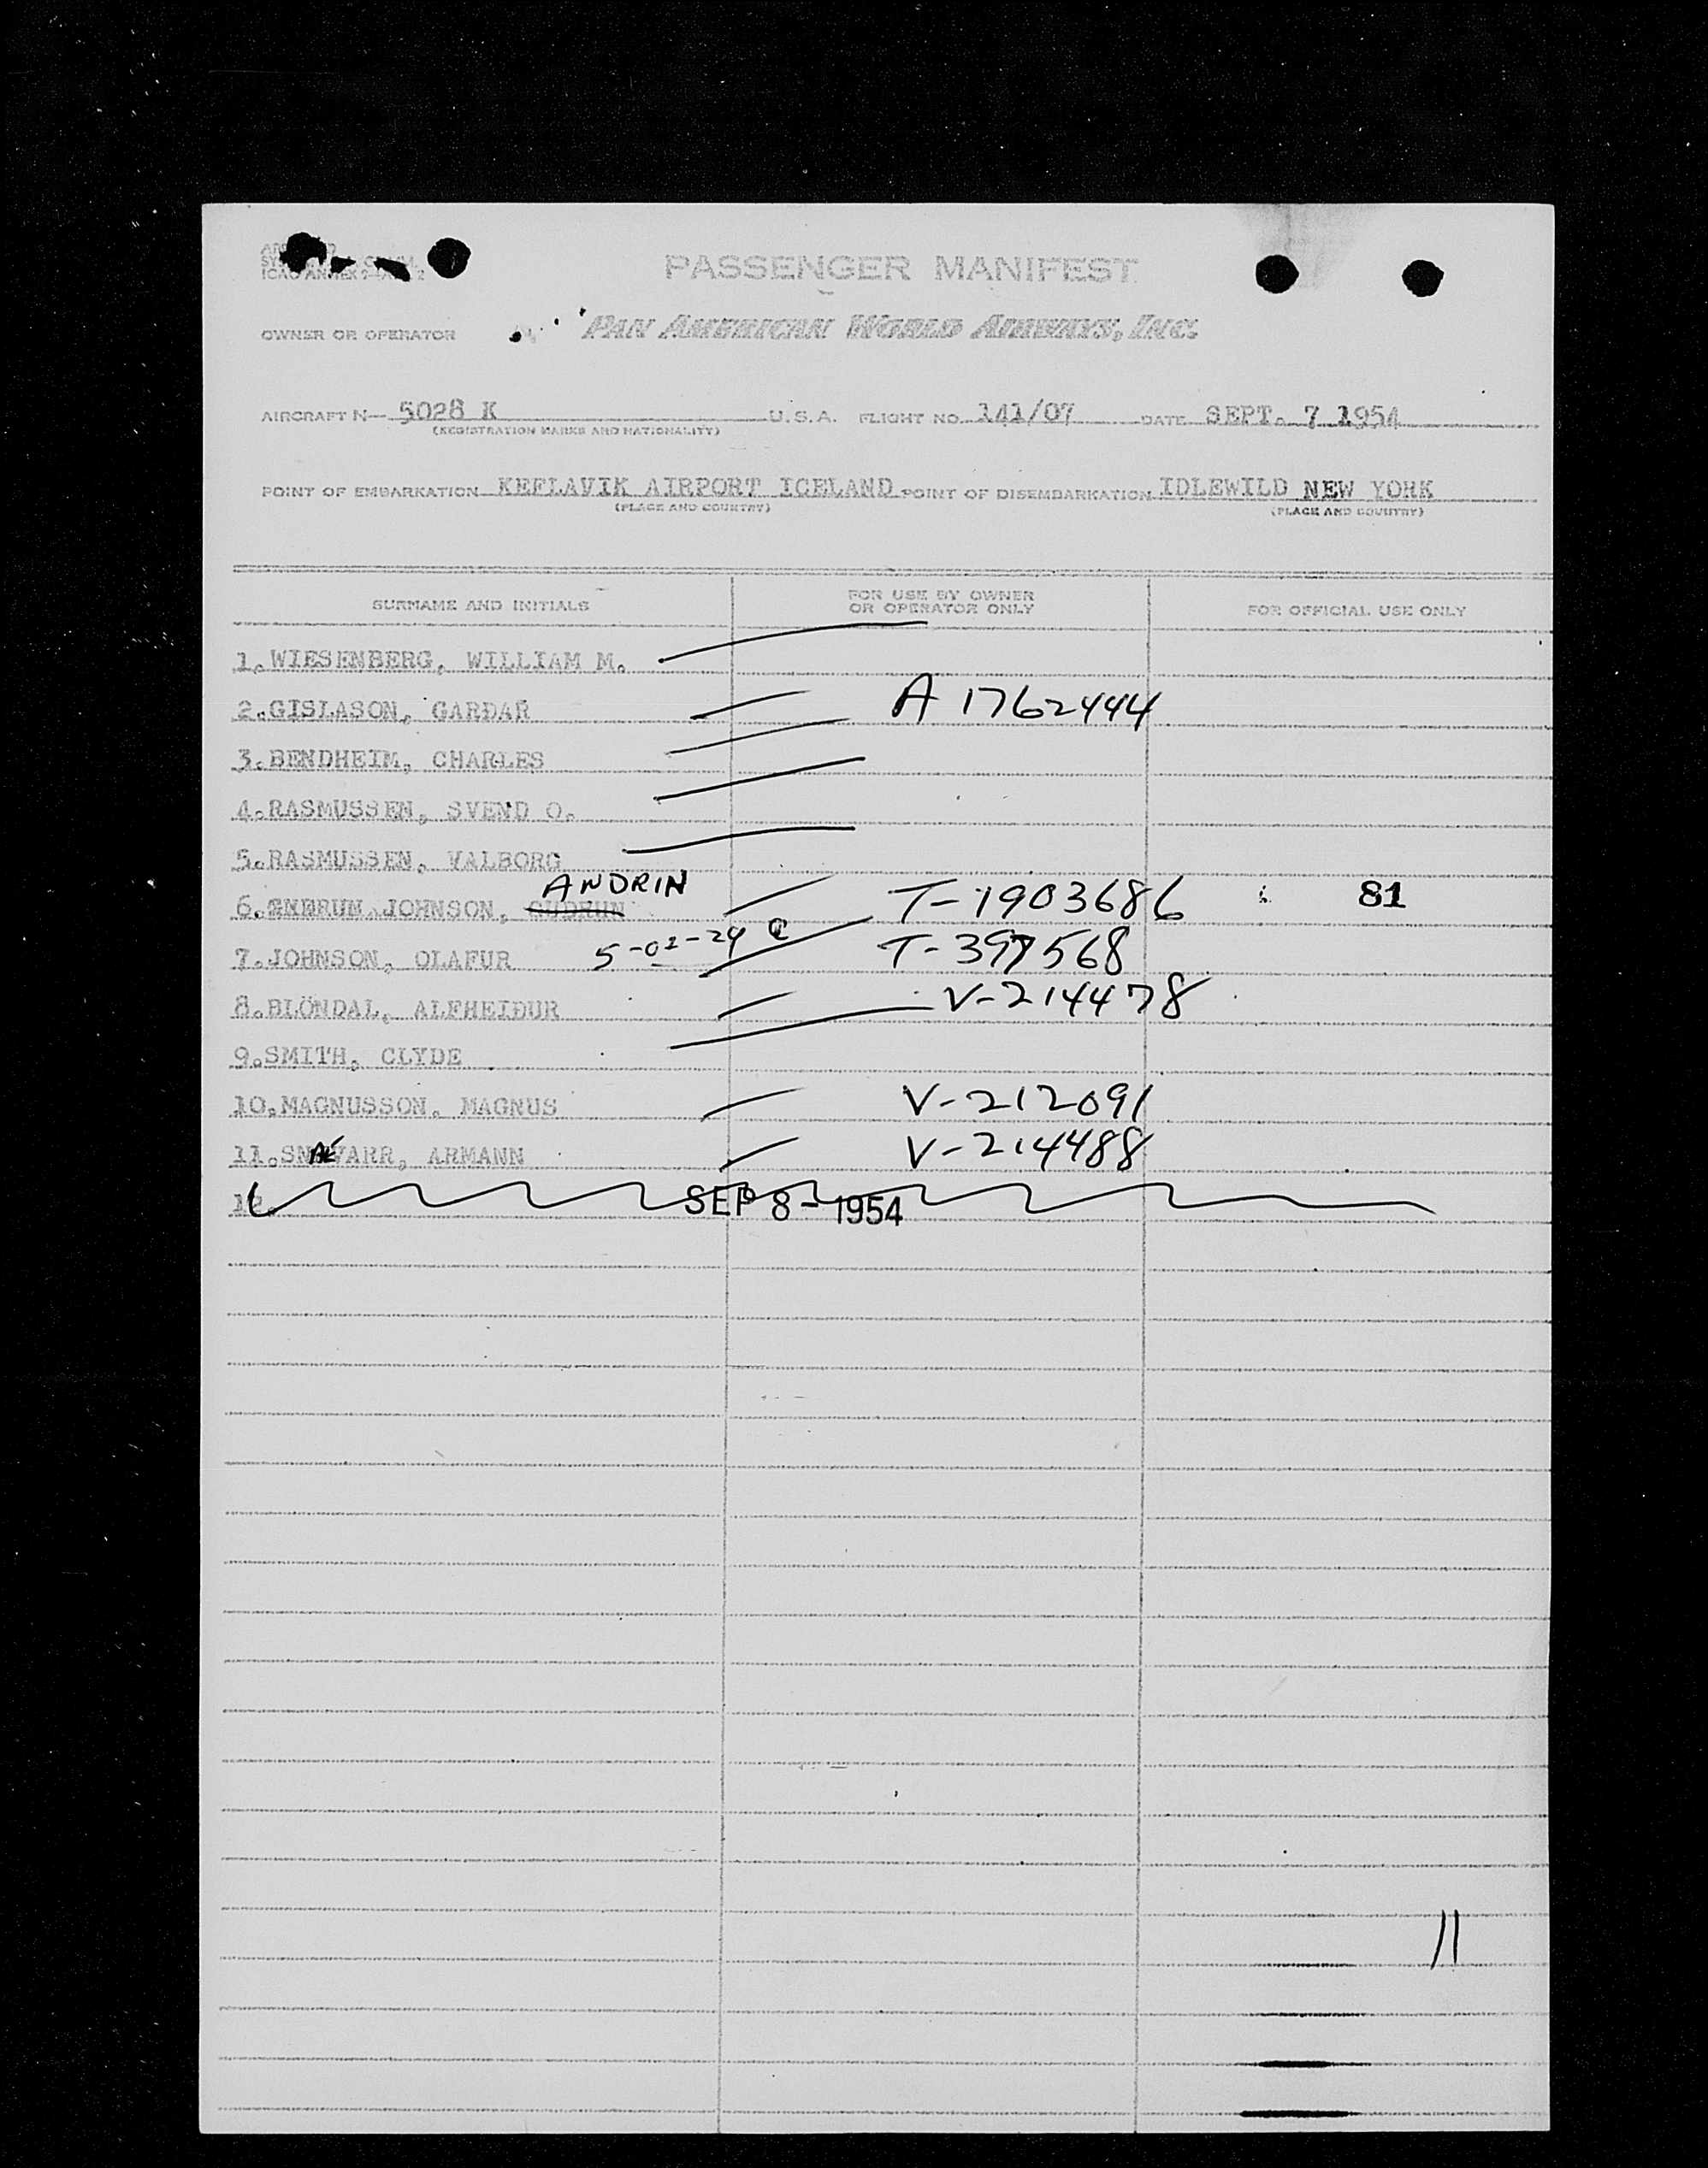 PASSENGER MANIFEST
ICAO ANNEX 9
OWNER OR OPERATOR PAN AMERICAN WORLD AIRWAYS, INC.
AIRCRAFT N- 5028 K U.S.A. FLIGHT NO. 141/07 DATE SEPT. 7 1954
(REGISTRATION MARKS AND NATIONALITY)
POINT OF EMBARKATION KEFLAVIK AIRPORT ICELAND POINT OF DISEMBARKATION IDLEWILD NEW YORK
(PLACE AND COUNTRY) (PLACE AND COUNTRY)
SURNAME AND INITIALS FOR USE BY OWNER OR OPERATOR ONLY FOR OFFICIAL USE ONLY
1. WIESENBERG, WILLIAM M.
2. GISLASON, GARDAR A 1762444
3. BENDHEIM, CHARLES
4. RASMUSSEN, SVEND O.
5. RASMUSSEN, VALBORG
ANDRIN
6. JOHNSON, GUDRUN T-1903686 81
5-02-24 C
7. JOHNSON, OLAFUR T-397568
8. BLÖNDAL, ALFHEIÐUR V-214478
9. SMITH, CLYDE
10. MAGNUSSON, MAGNUS V-212091
11. SNÆVARR, ARMANN V-214488
12.
SEP 8-1954
11